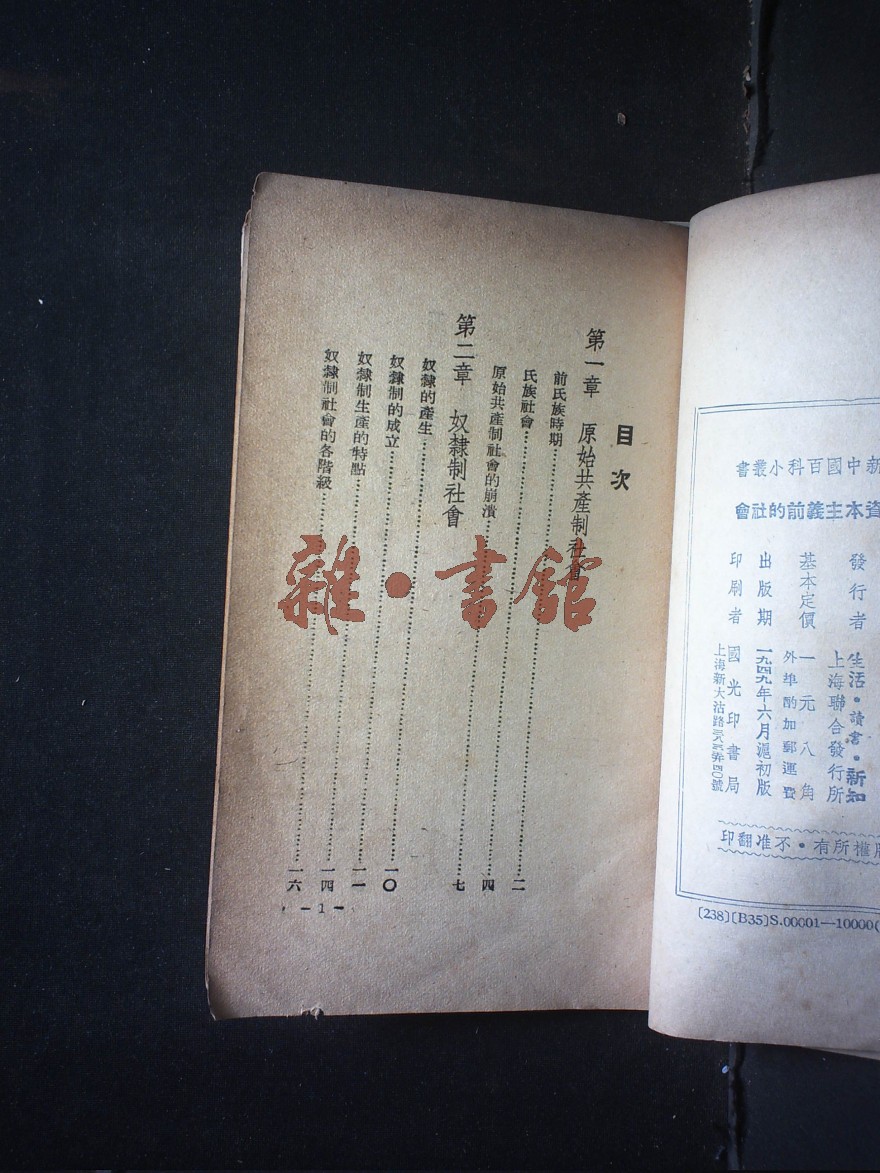 新中國百科小叢書
資本主義前的社會
發行者 生活·讀書·新知
上海聯合發行所
基本定價 一元八角
外埠酌加郵運費
出版期 一九四九年六月滬初版
印刷者 國光印書局
上海新大沽路
號
權所有·不准翻印
[238][B35]S.00001—10000(
目次
第一章 原始共產制社會
前氏族時期……二
氏族社會……四
原始共產制社會的崩潰……七
第二章 奴隸制社會
奴隸的產生……一〇
奴隸制的成立……一一
奴隸制生產的特點……一四
奴隸制社會的各階級……一六
—1—
雜·書館